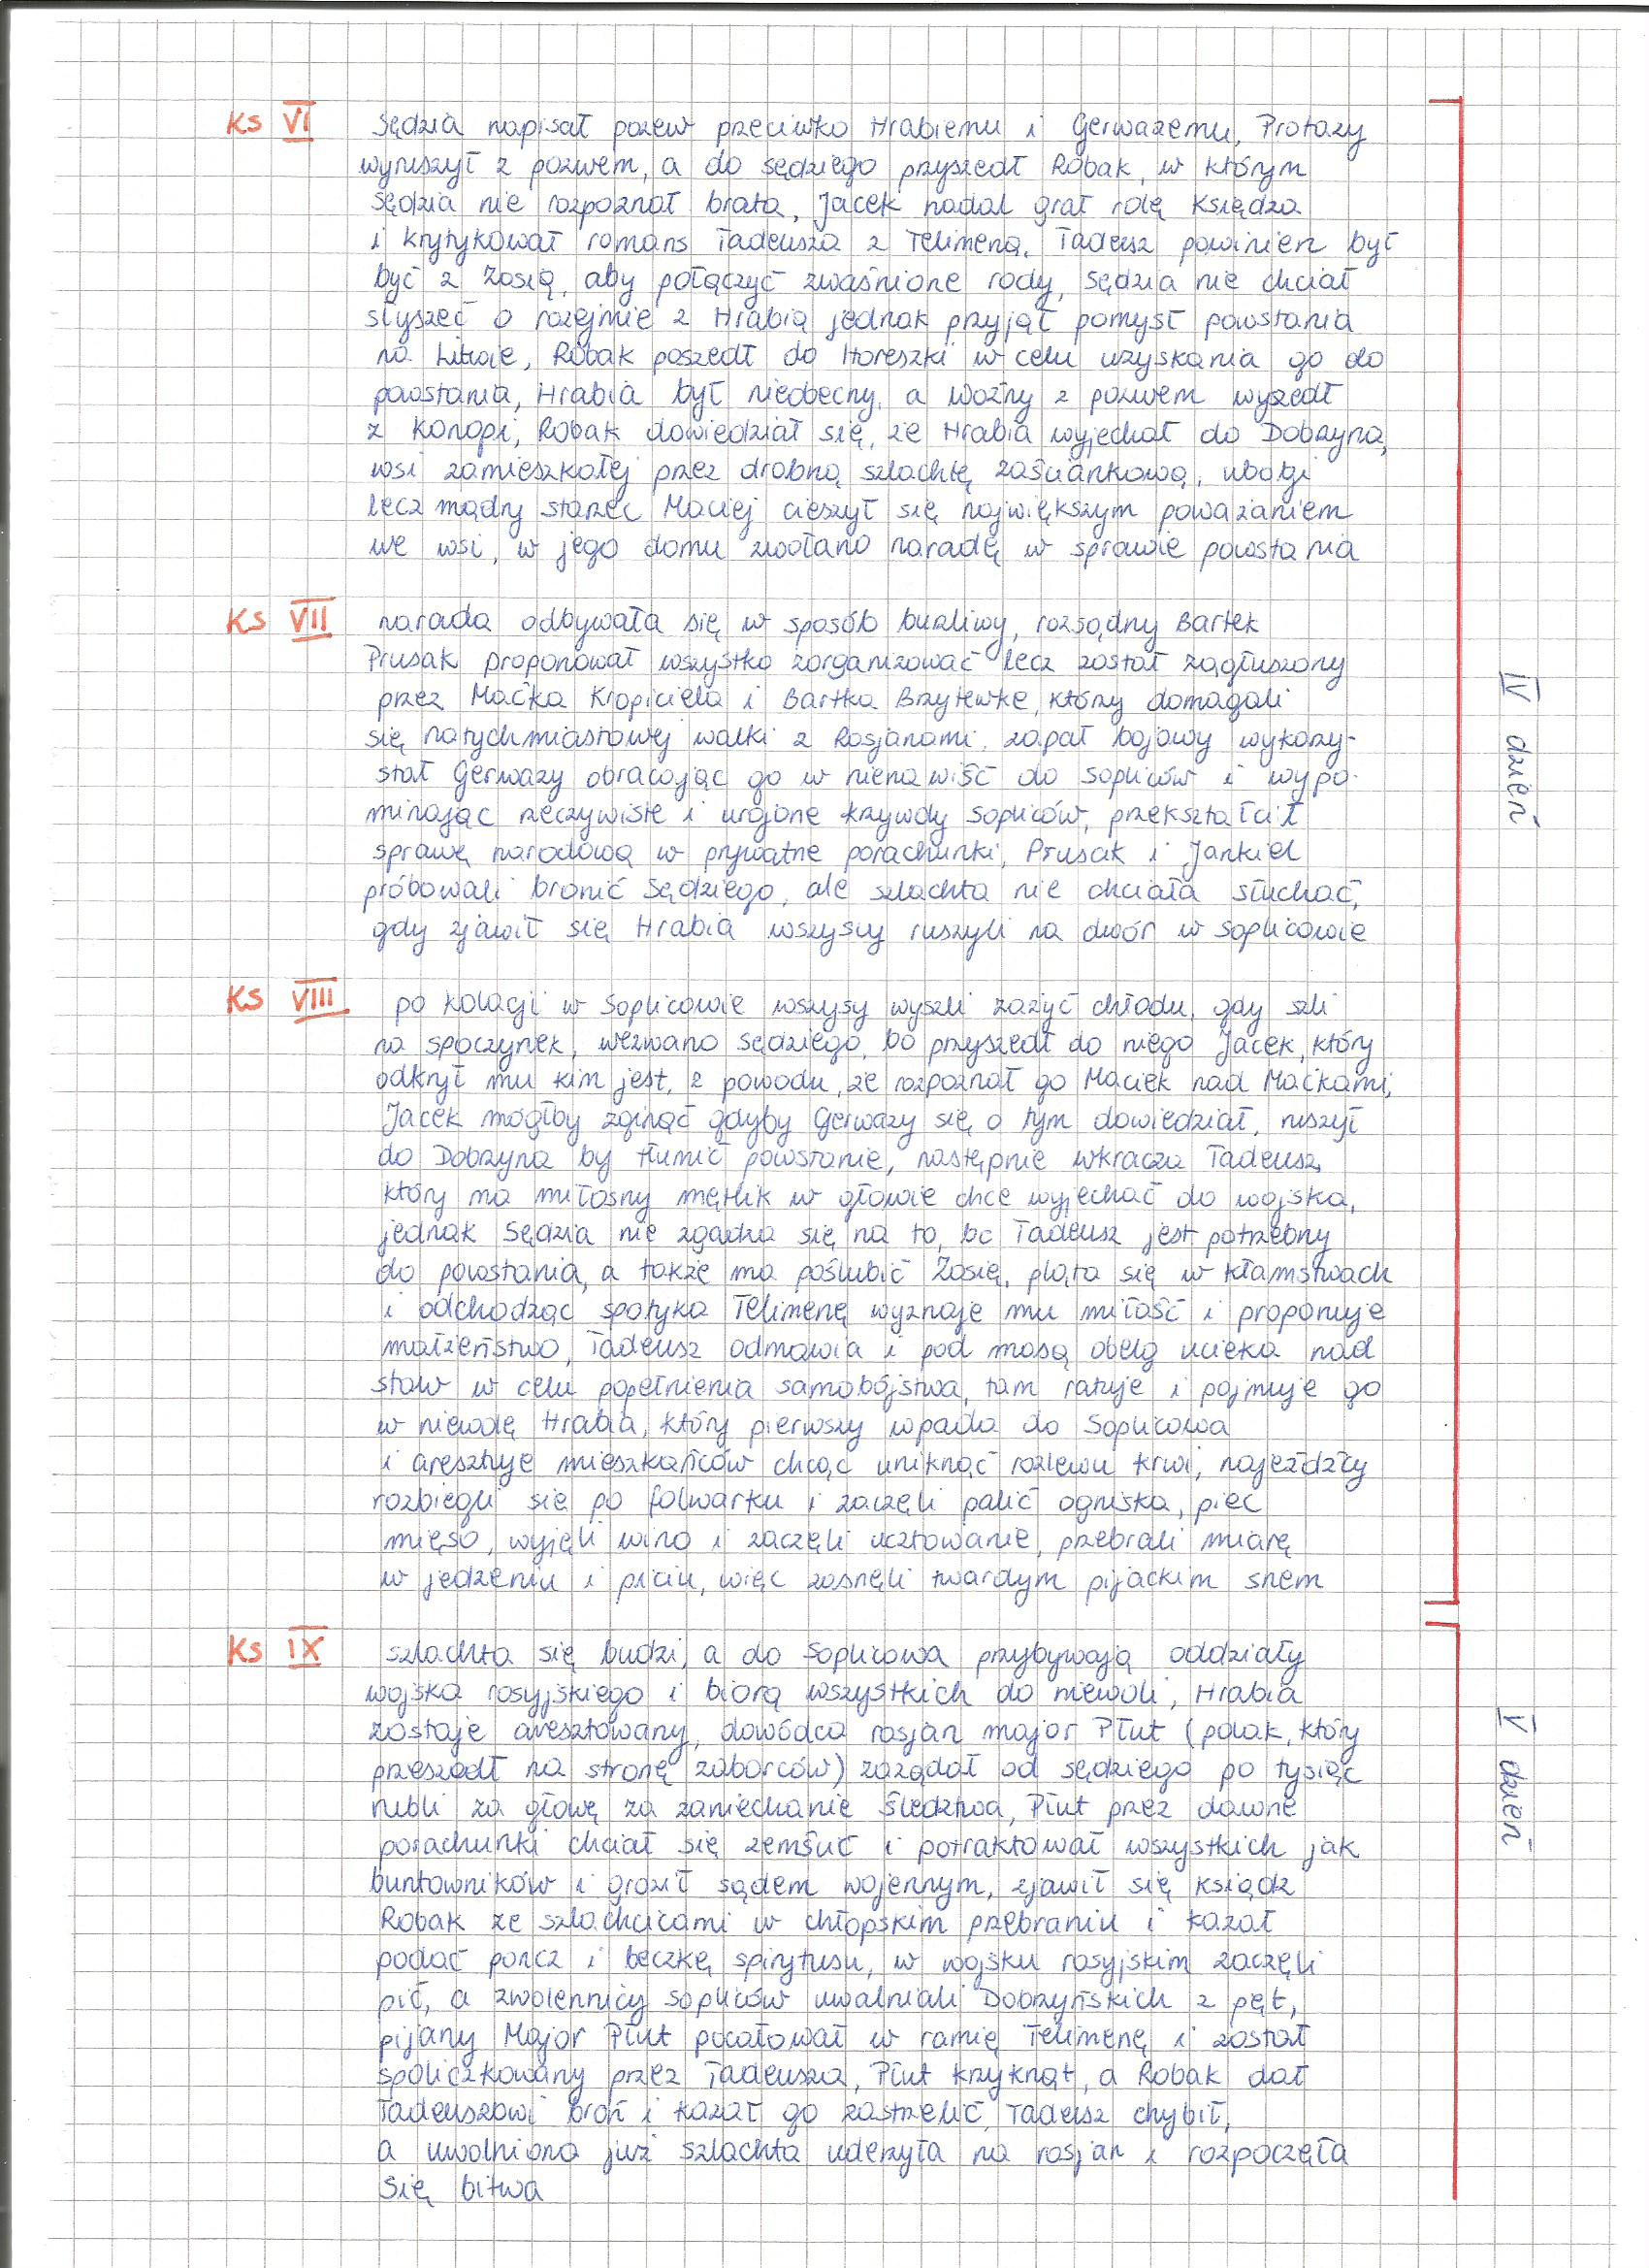 KS VI Sędzia napisał pozew przeciwko Hrabiemu i Gerwazemu, Protazy
wyruszył z pozwem, a do sędziego przyszedł Robak, w którym
Sędzia nie rozpoznał brata, Jacek nadal grał rolę Księdza
i krytykował romans Tadeusza z Telimeną. Tadeusz powinien był
być z Zosią, aby połączyć zwaśnione rody, Sędzia nie chciał
słyszeć o rozejmie z Hrabią jednak przyjął pomysł powstania
na Litwie, Robak poszedł do Horeszki w celu uzyskania go do
powstania, Hrabia był nieobecny, a Woźny z pozwem wyszedł
z Konopi, Robak dowiedział się, że Hrabia wyjechał do Dobrzyna,
wsi zamieszkałej przez drobną szlachtę zaściankową, ubogi
lecz mądry starzec Maciej cieszył się największym poważaniem
we wsi, w jego domu zwołano naradę w sprawie powstania
KS VII narada odbywała się w sposób burzliwy, rozsądny Bartek
Prusak proponował wszystko zorganizować lecz został zagłuszony
przez Maćka Kropiciela i Bartka Brzytewkę, którzy domagali
się natychmiastowej walki z Rosjanami, zapał bojowy wykorzy-
stał Gerwazy obracając go w nienawiść do Sopliców i wypo-
minając rzeczywiste i urojone krzywdy Sopliców, przekształcił
sprawę narodową w prywatne porachunki, Prusak i Jankiel
próbowali bronić Sędziego, ale szlachta nie chciała słuchać,
gdy zjawił się Hrabia wszyscy ruszyli na dwór w Soplicowie
IV dzień
KS VIII po kolacji w Soplicowie wszysy wyszli zażyć chłodu, gdy szli
na spoczynek, wezwano Sędziego, bo przyszedł do niego Jacek, który
odkrył mu kim jest, z powodu, że rozpoznał go Maciek nad Maćkami,
Jacek mógłby zginąć gdyby Gerwazy się o tym dowiedział, ruszył
do Dobrzyna by tłumić powstanie, następnie wkracza Tadeusz,
który ma miłosny mętlik w głowie chce wyjechać do wojska,
jednak Sędzia nie zgadza się na to, bo Tadeusz jest potrzebny
do powstania, a także ma poślubić Zosię, pląta się w kłamstwach
i odchodząc spotyka Telimenę wyznaje mu miłość i proponuje
małżeństwo, Tadeusz odmawia i pod masą obelg ucieka nad
staw w celu popełnienia samobójstwa, tam ratuje i pojmuje go
w niewolę Hrabia, który pierwszy wpada do Soplicowa
i aresztuje mieszkańców chcąc uniknąć rozlewu krwi, najeźdźcy
rozbiegli się po folwarku i zaczęli palić ogniska, piec
mięso, wyjęli wino i zaczęli ucztowanie, przebrali miarę
w jedzeniu i piciu, więc zasnęli twardym pijackim snem
KS IX szlachta się budzi, a do Soplicowa przybywają oddziały
wojska rosyjskiego i biorą wszystkich do niewoli, Hrabia
zostaje aresztowany, dowódca rosjan major Płut (polak, który
przeszedł na stronę zaborców) zażądał od sędziego po tysiąc
rubli za głowę za zaniechanie śledztwa, Płut przez dawne
porachunki chciał się zemścić i potraktował wszystkich jak
buntowników i groził sądem wojennym, zjawił się ksiądz
Robak ze szlachcicami w chłopskim przebraniu i kazał
podać poncz i beczkę spirytusu, w wojsku rosyjskim zaczęli
pić, a zwolennicy Sopliców uwalniali Dobrzyńskich z pęt,
pijany Major Płut pocałował w ramię Telimenę i został
spoliczkowany przez Tadeusza, Płut krzyknął, a Robak dał
Tadeuszowi broń i kazał go zastrzelić, Tadeusz chybił,
a uwolniona już szlachta uderzyła na rosjan i rozpoczęła
się bitwa
V dzień